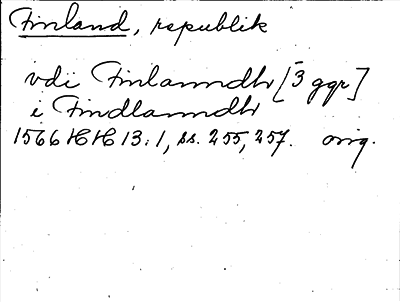 Finland, republik
vdi Finlanndh [3 ggr]
i Findlanndh
1566 HH 13:1, ss. 255, 257. orig.